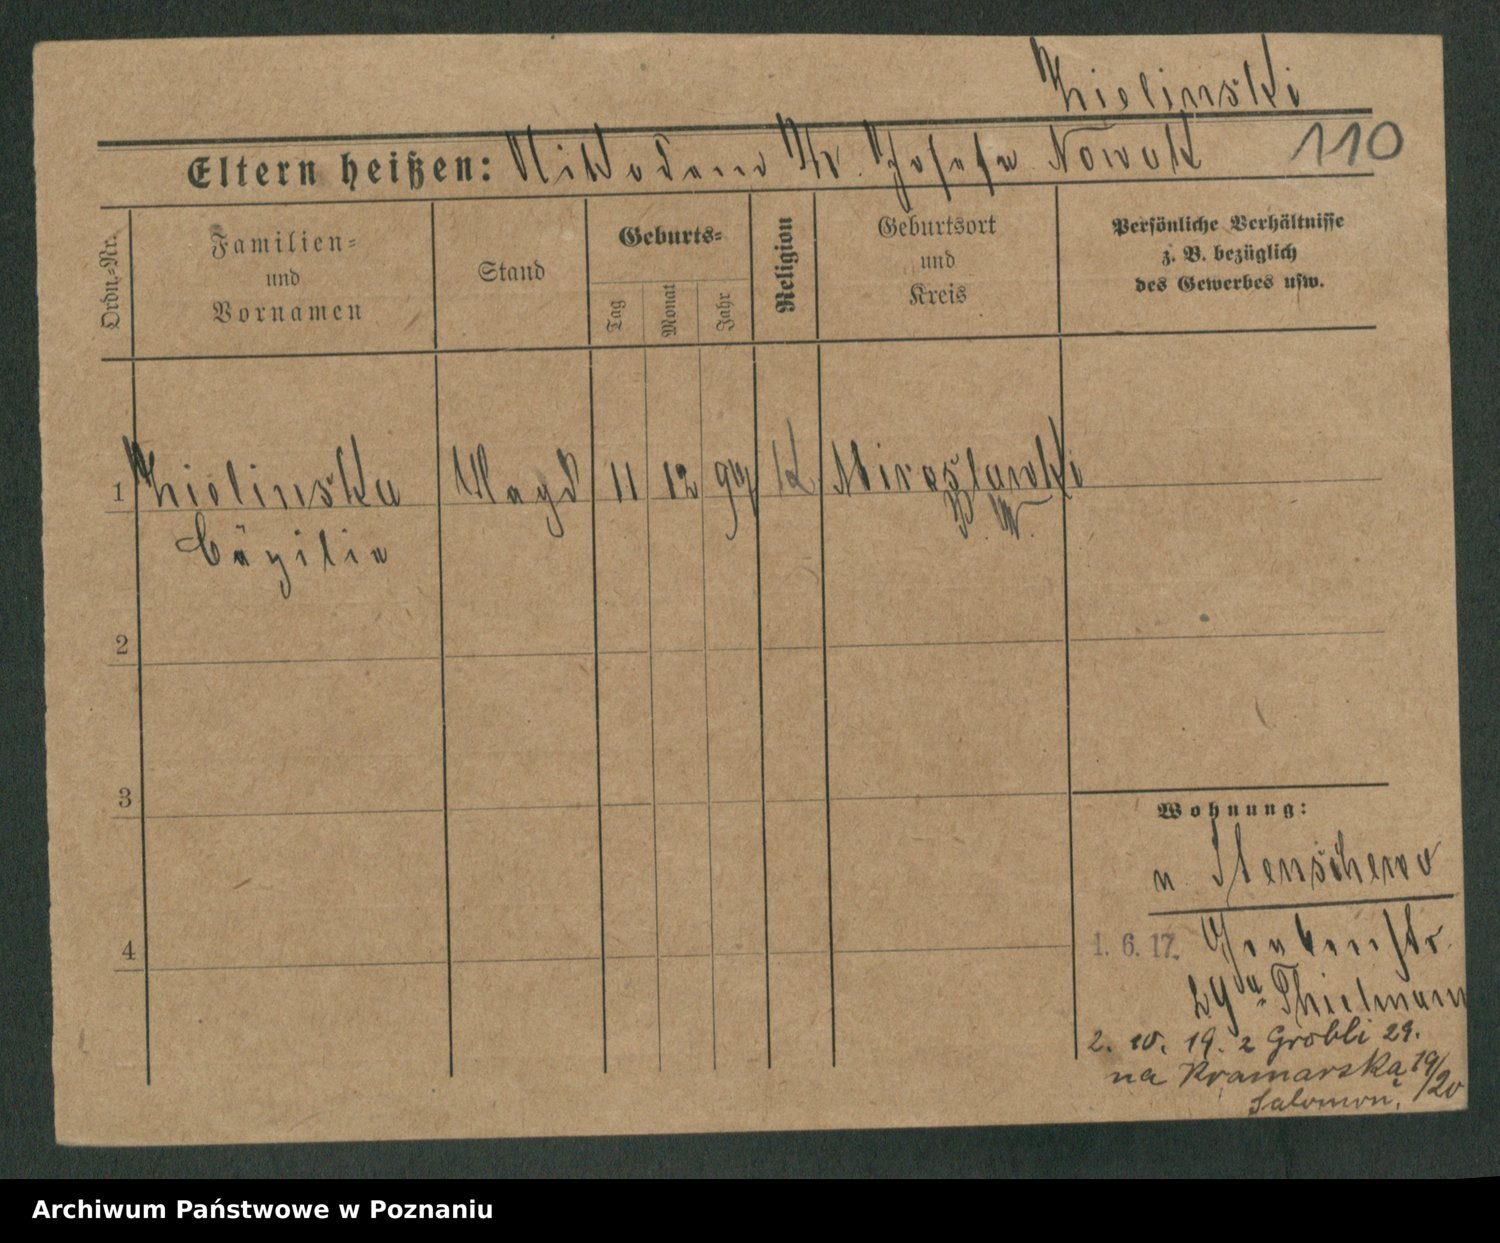 Zielinski
Eltern heißen: Nikodem Z. Josefa Nowak 110
Ordn.-Nr.
Familien-
und
Vornamen
Stand
Geburts-
Tag
Monat
Jahr
Religion
Geburtsort
und
Kreis
Persönliche Verhältnisse
z. B. bezüglich
des Gewerbes usw.
1 Zielinska Magd 11 12 97 K Miroslawki
Cäzilia
2
3
4
Wohnung:
n. Stenschewo
1. 6. 17. Grabenstr.
29 Thielmann
2. 10. 19. z Grobli 29.
na Kramarska 19/20
Salomon
Archiwum Państwowe w Poznaniu